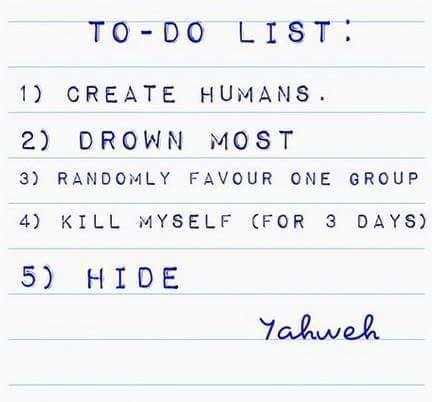 TO-DO LIST:
1) CREATE HUMANS.
2) DROWN MOST
3) RANDOMLY FAVOUR ONE GROUP
4) KILL MYSELF (FOR 3 DAYS)
5) HIDE
Yahweh